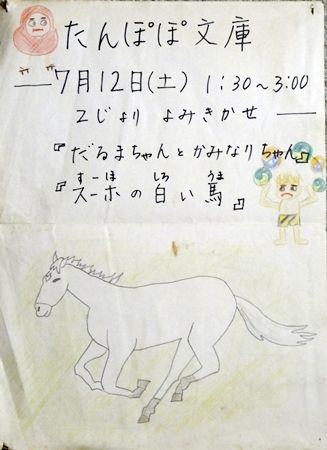 たんぽぽ文庫
7月12日(土) 1:30~3:00
2じより よみきかせ
『だるまちゃんとかみなりちゃん』
すーほ しろ うま
『スーホの白い馬』